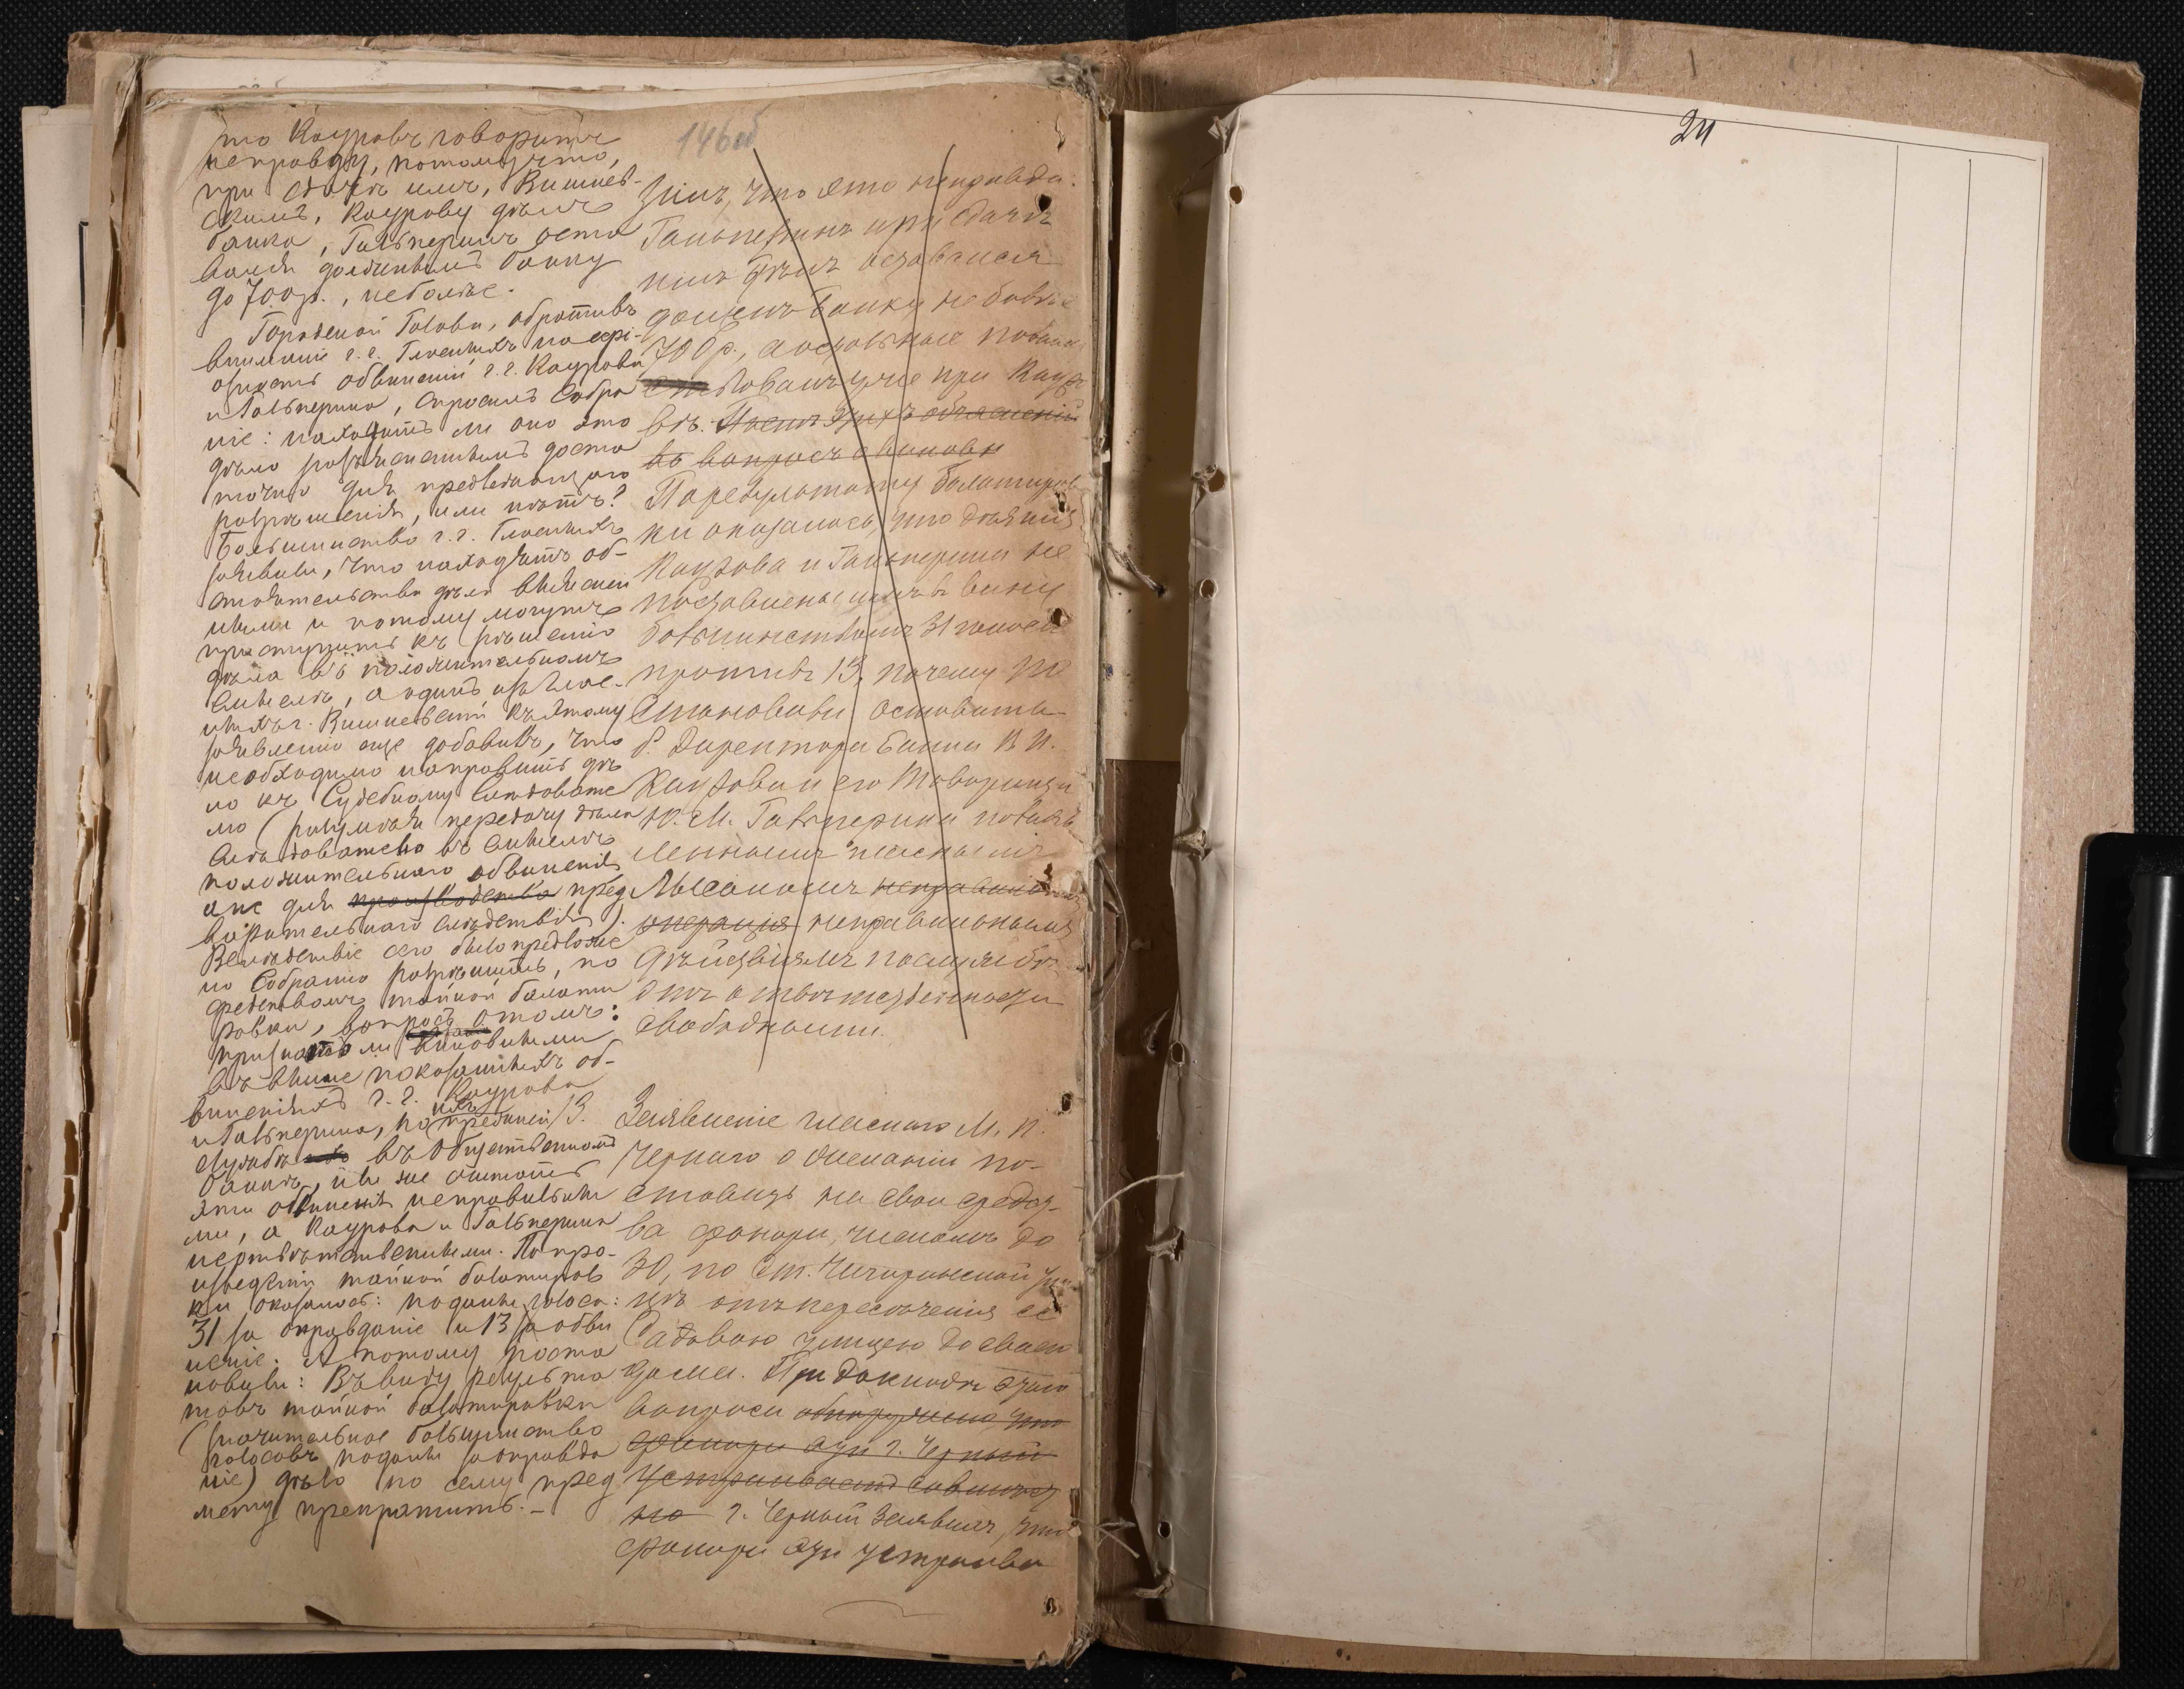 146 об
то Кауровъ говоритъ
неправду, потому что,
при сдачѣ имъ, Вишнев-
скимъ, Каурову дѣлъ
банка, Гальперинъ оста
вался должнымъ банку
до 700 р., не болѣе.
Городской Голова, обративъ
вниманіе г.г. Гласныхъ на сері-
озность обвиненій г.г. Каурова
и Гальперина, спросилъ Собра
ніе: находитъ ли оно это
дѣло разъясненнымъ доста
точно для предстоящаго
разрѣшенія, или нѣтъ?
Большинство г.г. Гласныхъ
заявили, что находятъ об-
стоятельства дѣла выяснен
ными и потому могутъ
приступить къ рѣшенію
дѣла въ положительномъ
смыслѣ, а одинъ изъ глас-
ныхъ г. Вишневскій къ этому
заявленію еще добавилъ, что
необходимо направить дѣ
ло къ Судебному Слѣдовате
лю (разумѣя передачу дѣла
Слѣдователю въ смыслѣ
положительнаго обвиненія
а не для производства пред
варительнаго слѣдствія).
Вслѣдствіе сего было предложе
но Собранію разрѣшить, по
средствомъ тайной баллоти
ровки, вопросъ о томъ:
признаетъ ли виновными
въ выше показанныхъ об-
виненіяхъ г.г. Каурова
и Гальперина, по ихъ прежней
службѣ въ Общественномъ
банкѣ, или же считаетъ
эти обвиненія неправильны
ми, а Каурова и Гальперина
неотвѣтственными. По про-
изведеніи тайной баллотиров
ки оказалось: поданы голоса:
31 за оправданіе и 13 за обви
неніе. А потому поста
новили: Въ виду результа
товъ тайной баллотировки
(значительное большинство
голосовъ поданы за оправда
ніе) дѣло по сему пред
мету прекратить. –
зилъ, что это неправда.
Гальперинъ при сдачѣ
имъ дѣлъ оставался
долженъ банку не болѣе
700 р., а остальные позаим
ствовалъ уже при Кауро
вѣ. Послѣ этихъ объясненій
въ вопросѣ о виновн
По результату баллотиров
ки оказалось, что дѣянія
Каурова и Гальперина не
поставлены имъ въ вину
большинствомъ 31 голоса
противъ 13, почему по
становили оставить
б. Директора Банка В. И.
Каурова и его Товарища
Ю. М. Гальперина по заяв
леннымъ гласнымъ
Лысакомъ неправильнымъ
операція неправильнымъ
дѣйствіямъ по службѣ
отъ отвѣтственности
свободными.
13. Заявленіе гласнаго М. И.
Чернаго о желаніи по-
ставить на свои средст-
ва фонари, числомъ до
30, по Ст. Чигиринской ули
цѣ отъ пересѣченія ее
Садовою улицею до своего
дома. При докладѣ этого
вопроса обнаружено, что
фонари эти г. Черный
устраиваетъ собствен
но г. Черный заявилъ, что
фонари эти устраива
24